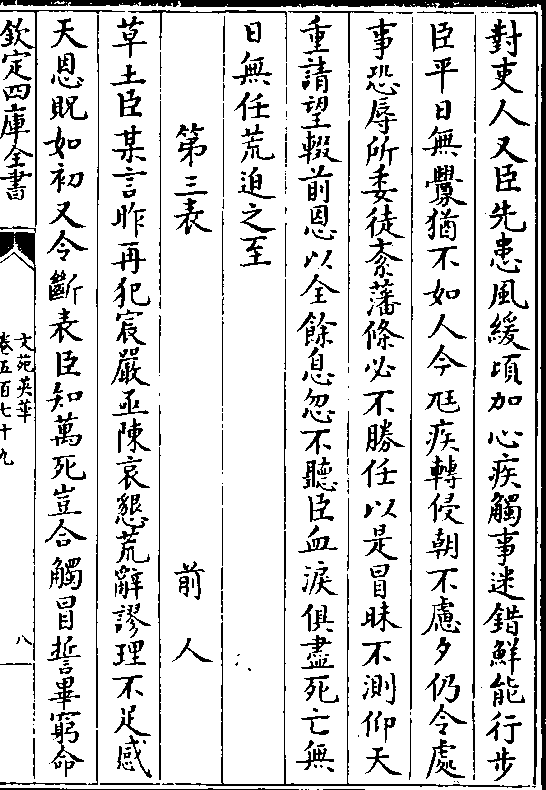 對吏人又臣先患風緩頃加心疾觸事迷錯鮮能行步
臣平日無釁猶不如人今尫疾轉侵朝不慮夕仍令處
事恐辱所委徒紊藩條必不勝任以是冒昧不測仰天
重請望輟前恩以全餘息忽不聽臣血淚俱盡死亡無
日無任荒迫之至
第三表 前人
草土臣某言昨再犯宸嚴亟陳哀懇荒辭謬理不足感
天恩貺如初又令斷表臣知萬死豈合觸冒誓畢窮命
欽定四庫全書
文苑英華
卷五百七十九
八